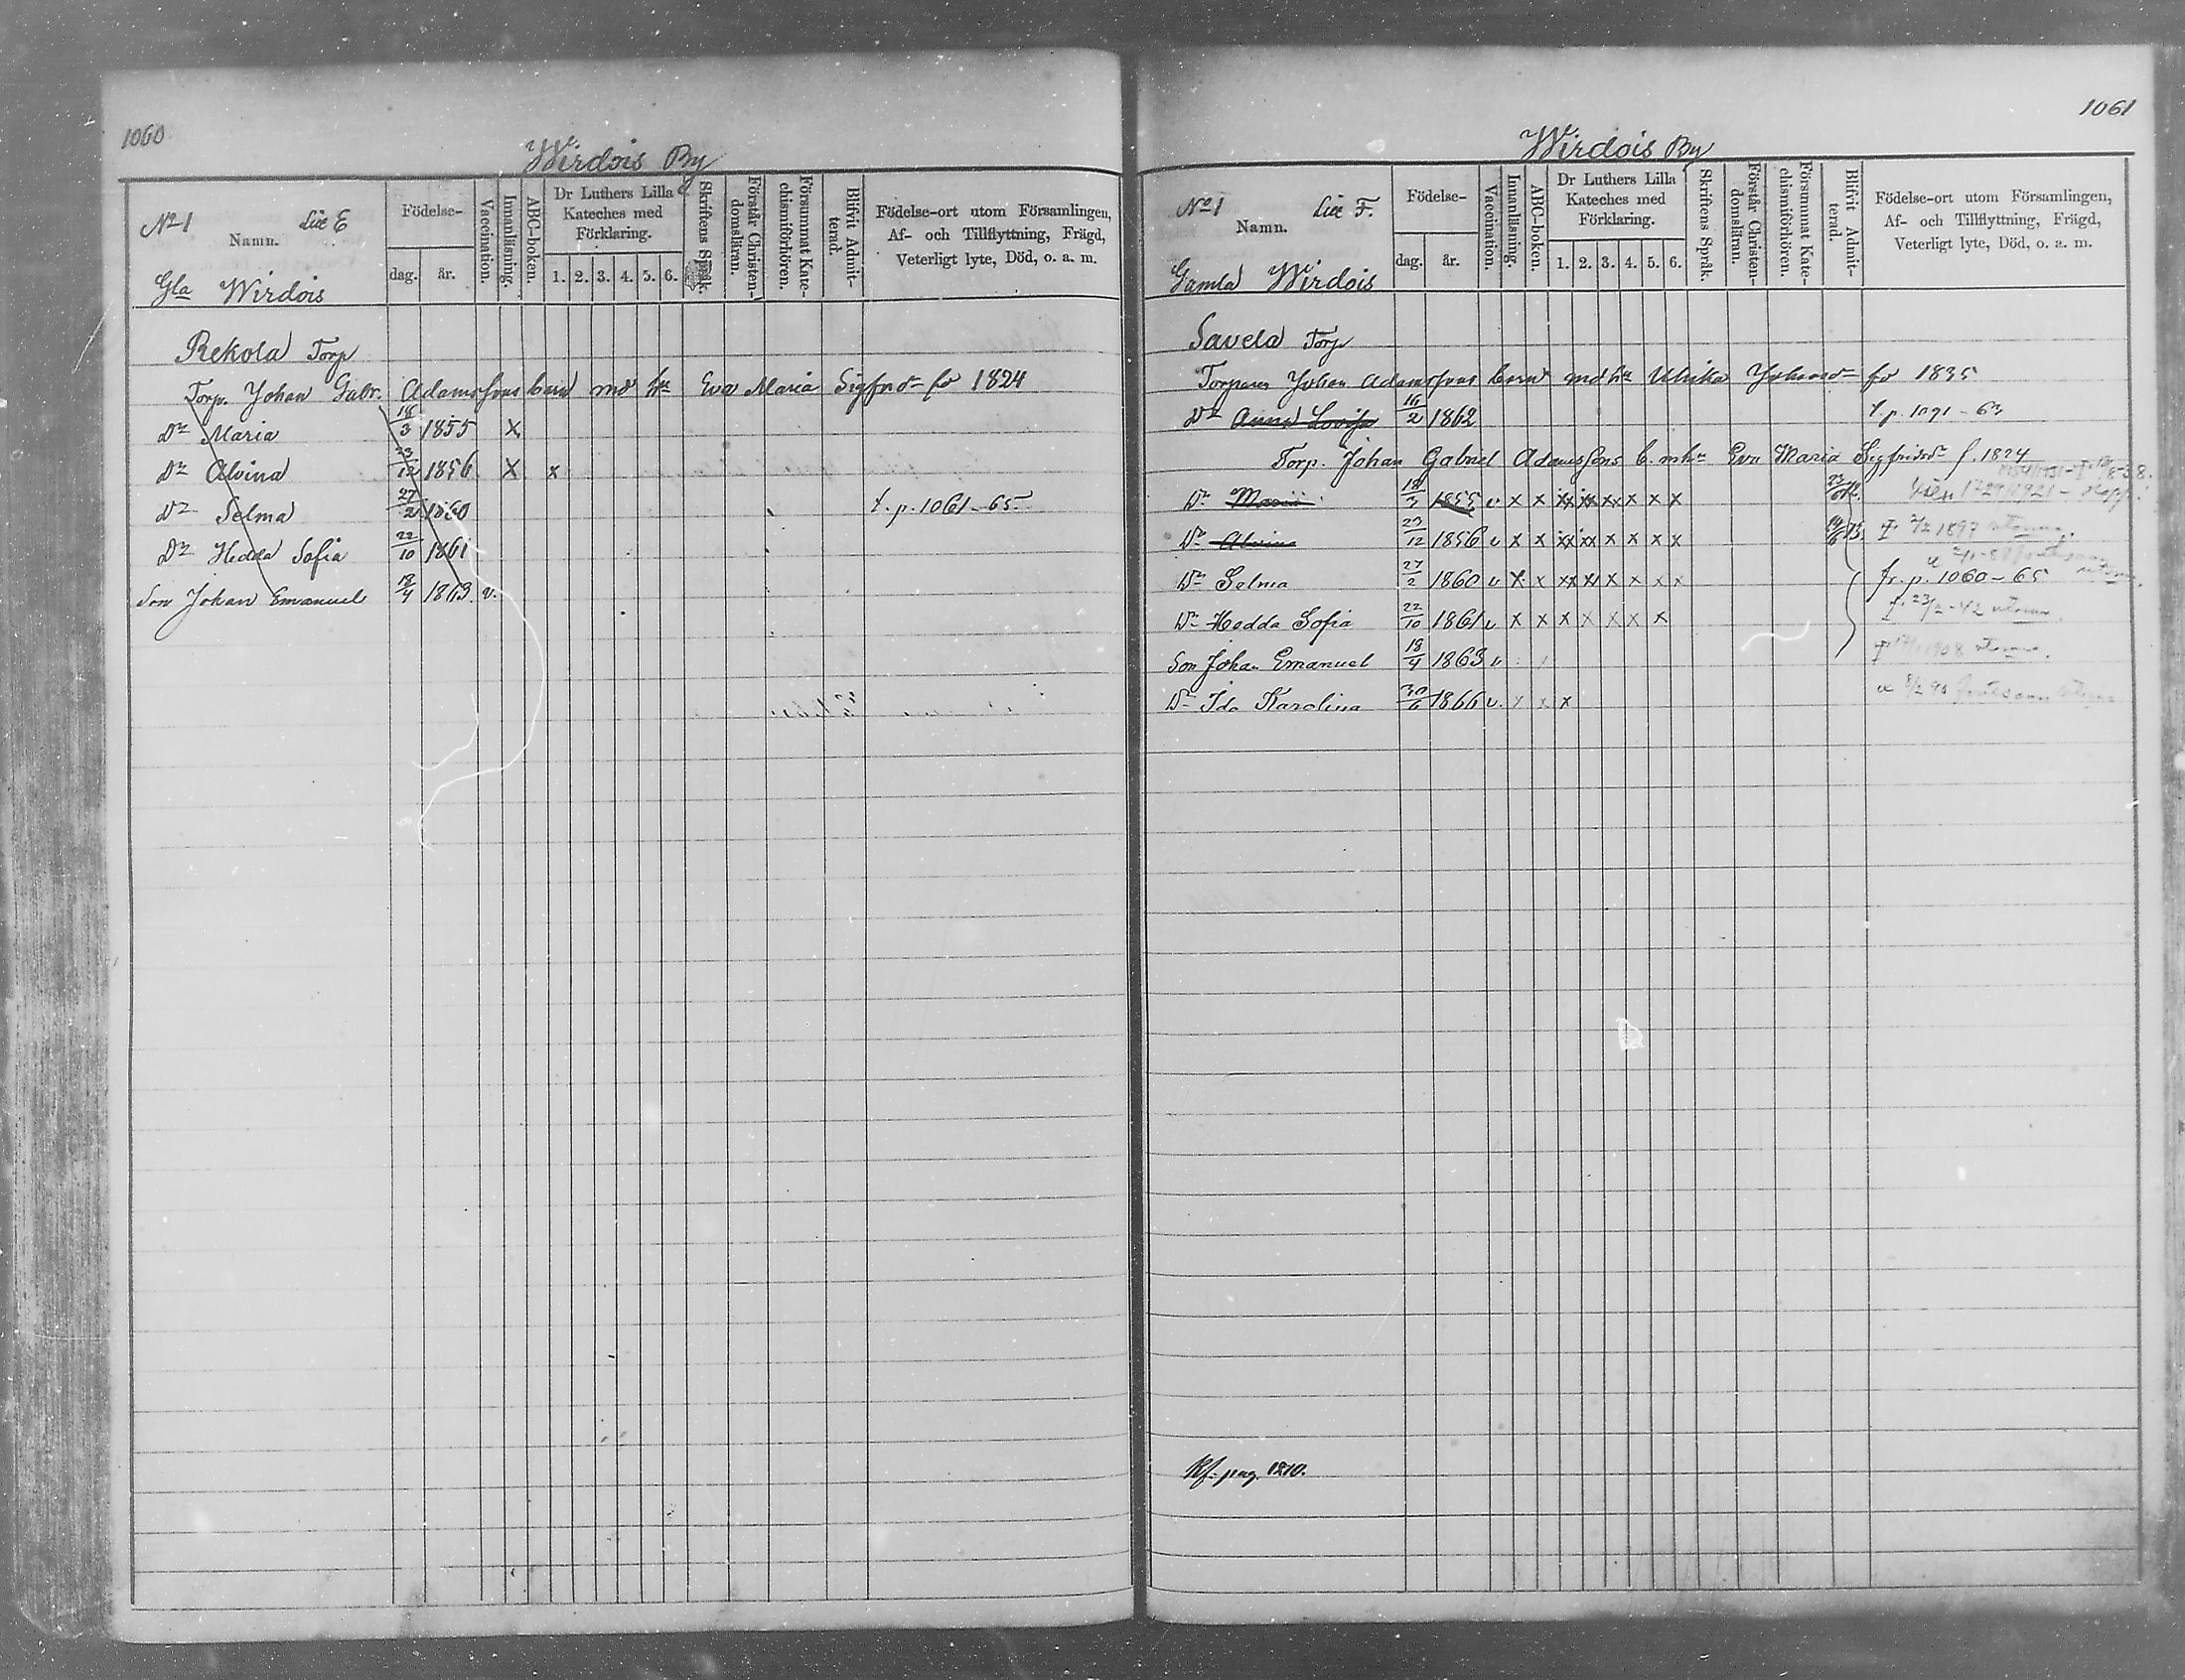 1060
Wirdois By
No 1 Litt E
Namn.
Gla Wirdois
Födelse-
dag. år.
Vaccination.
Innanläsning.
ABC-boken.
Dr Luthers Lilla
Kateches med
Förklaring.
1. 2. 3. 4. 5. 6.
Skriftens Språk.
Förstår Christen-
domsläran.
Försummat Kate-
chismiförhören.
Blifvit Admit-
terad.
Födelse-ort utom Församlingen,
Af- och Tillflyttning, Frägd,
Veterligt lyte, Död, o. a. m.
Rekola Torp
Torp. Johan Gabr. Adamssons barn md hu Eva Maria Sigfrdr fö 1824
Dr Maria 18/3 1855 x
Dr Alvina 23/12 1856 x x
Dr Selma 27/2 1860 t. p. 1061–65
Dr Hedda Sofia 22/10 1861
Son Johan Emanuel 18/4 1863 v.
1061
Wirdois By
No 1 Litt F.
Namn.
Gamla Wirdois
Födelse-
dag. år.
Vaccination.
Innanläsning.
ABC-boken.
Dr Luthers Lilla
Kateches med
Förklaring.
1. 2. 3. 4. 5. 6.
Skriftens Språk.
Förstår Christen-
domsläran.
Försummat Kate-
chismiförhören.
Blifvit Admit-
terad.
Födelse-ort utom Församlingen,
Af- och Tillflyttning, Frägd,
Veterligt lyte, Död, o. a. m.
Savela Torp
Torparen Johan Adamssons barn md hu Ulrika Johansdr fö 1835
Dr Anna Lovisa 16/2 1862 t. p. 1091–63
Torp. Johan Gabriel Adamssons b. m hu Eva Maria Sigfridsdr f. 1824
Dr Maria 18/3 1855 v x x xx xx xx x x x
Dr Alvina 23/12 1856 v x x xx xx x x x x
Dr Selma 27/2 1860 v x x xx x x x x x fr. p. 1060–65
Dr Hedda Sofia 22/10 1861 v x x x x x x x
Son Johan Emanuel 18/4 1863 v
Dr Ida Karolina 30/6 1866 v. x x x
Kf. pag. 1210.